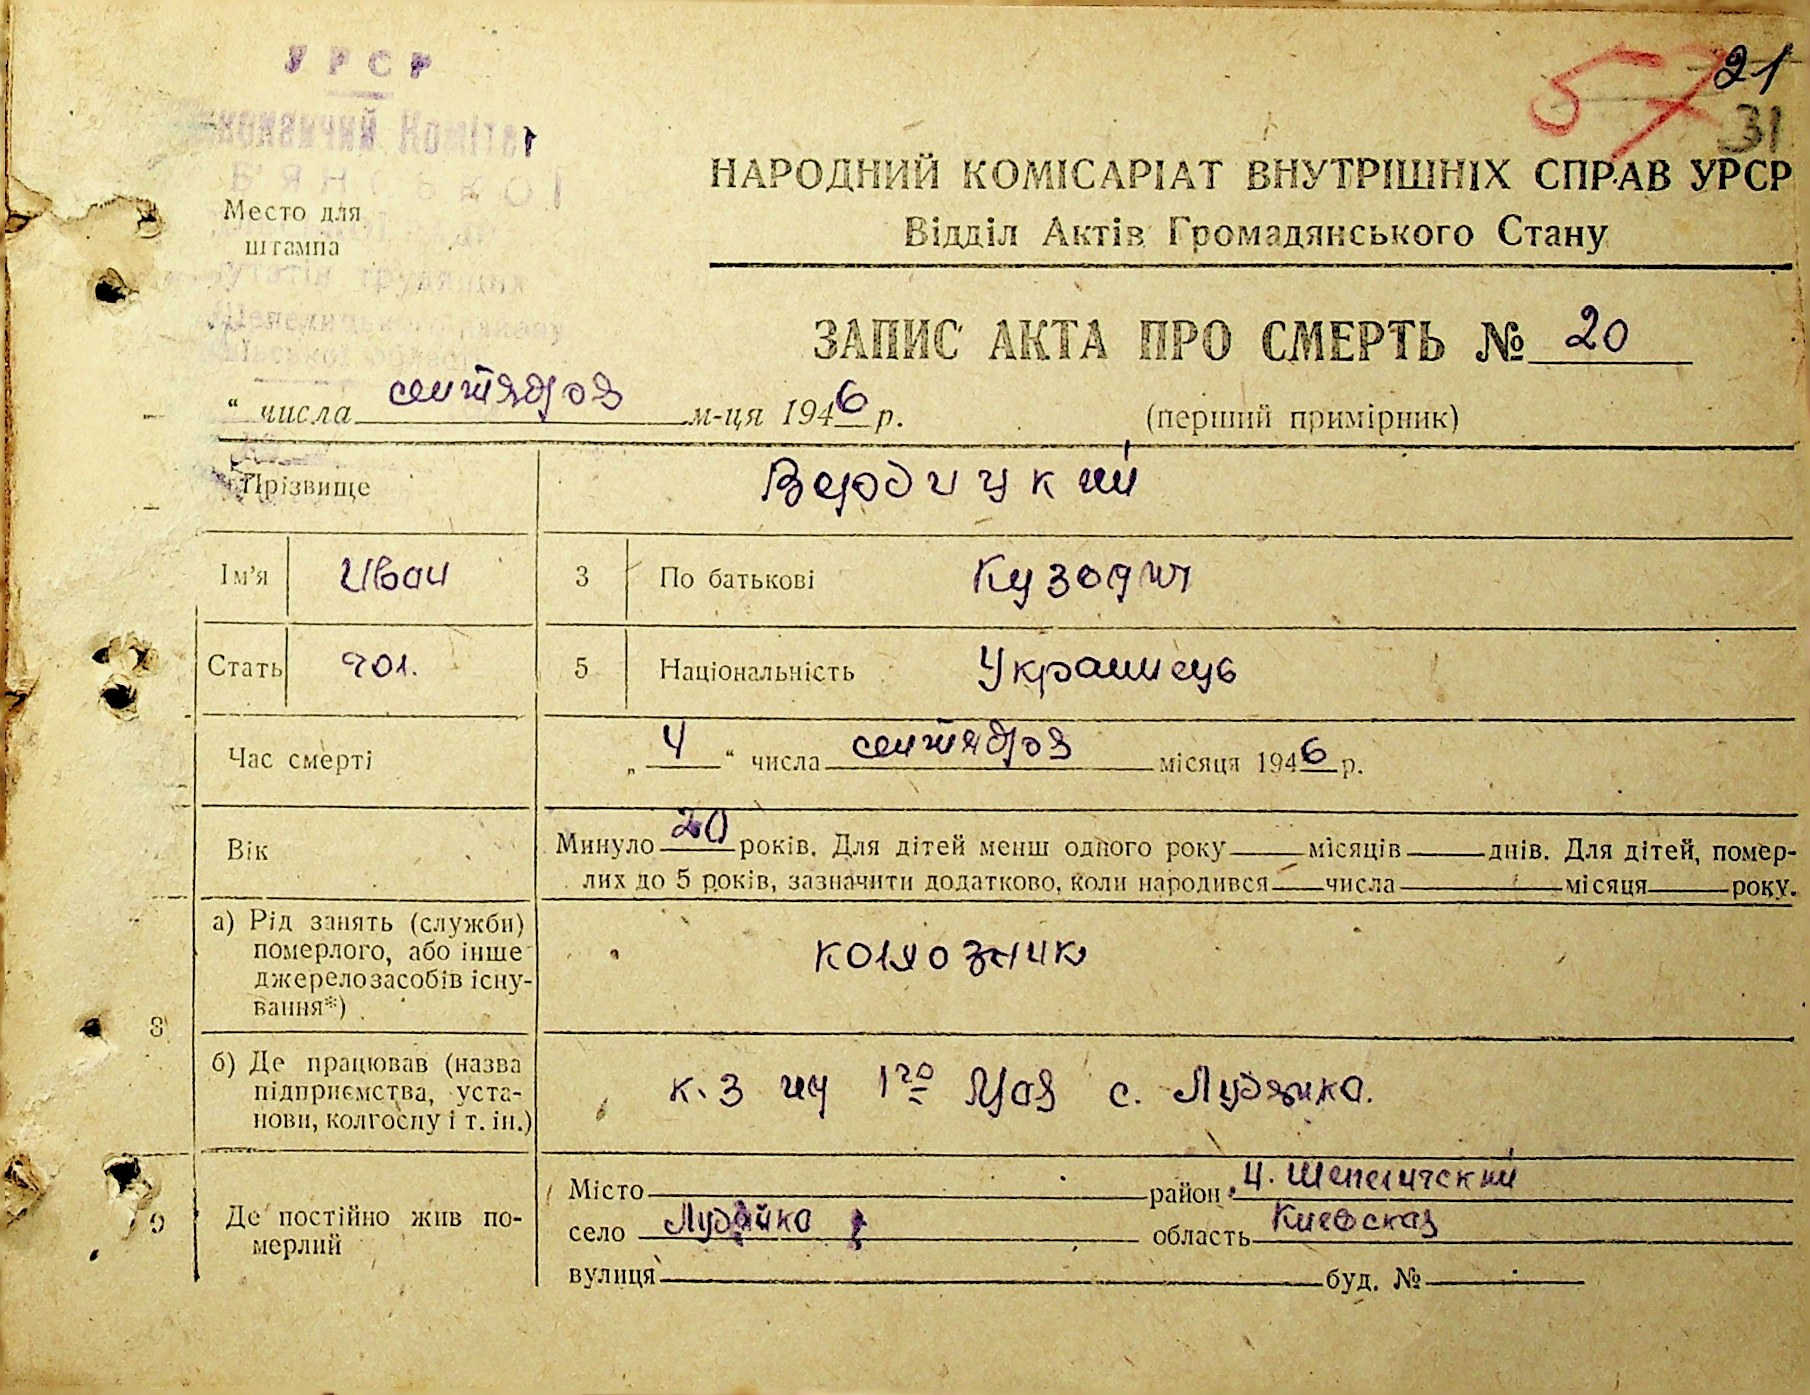 УРСР
21
57
31
Виконавчий Комітет
Место для
штампа
НАРОДНИЙ КОМІСАРІАТ ВНУТРІШНІХ СПРАВ УРСР
Відділ Актів Громадянського Стану
ЗАПИС АКТА ПРО СМЕРТЬ № 20
“ числа сентября м-ця 1946 р. (перший примірник)
Прізвище Вердицкий
Ім’я Иван 3 По батькові
Стать чол. 5 Національність Украинець
Час смерті „ 4 “ числа сентября місяця 1946 р.
Вік Минуло 20 років. Для дітей менш одного року місяців днів. Для дітей, помер-
лих до 5 років, зазначити додатково, коли народився числа місяця року.
а) Рід занять (служби)
померлого, або інше
джерело засобів існу-
вання*)
колхозник
8
б) Де працював (назва
підприємства, уста-
нови, колгоспу і т. ін.)
к. з им 1го Мая с.
9 Де постійно жив по-
мерлий
Місто район Н. Шепеличский
село область Киевская
вулиця буд. №